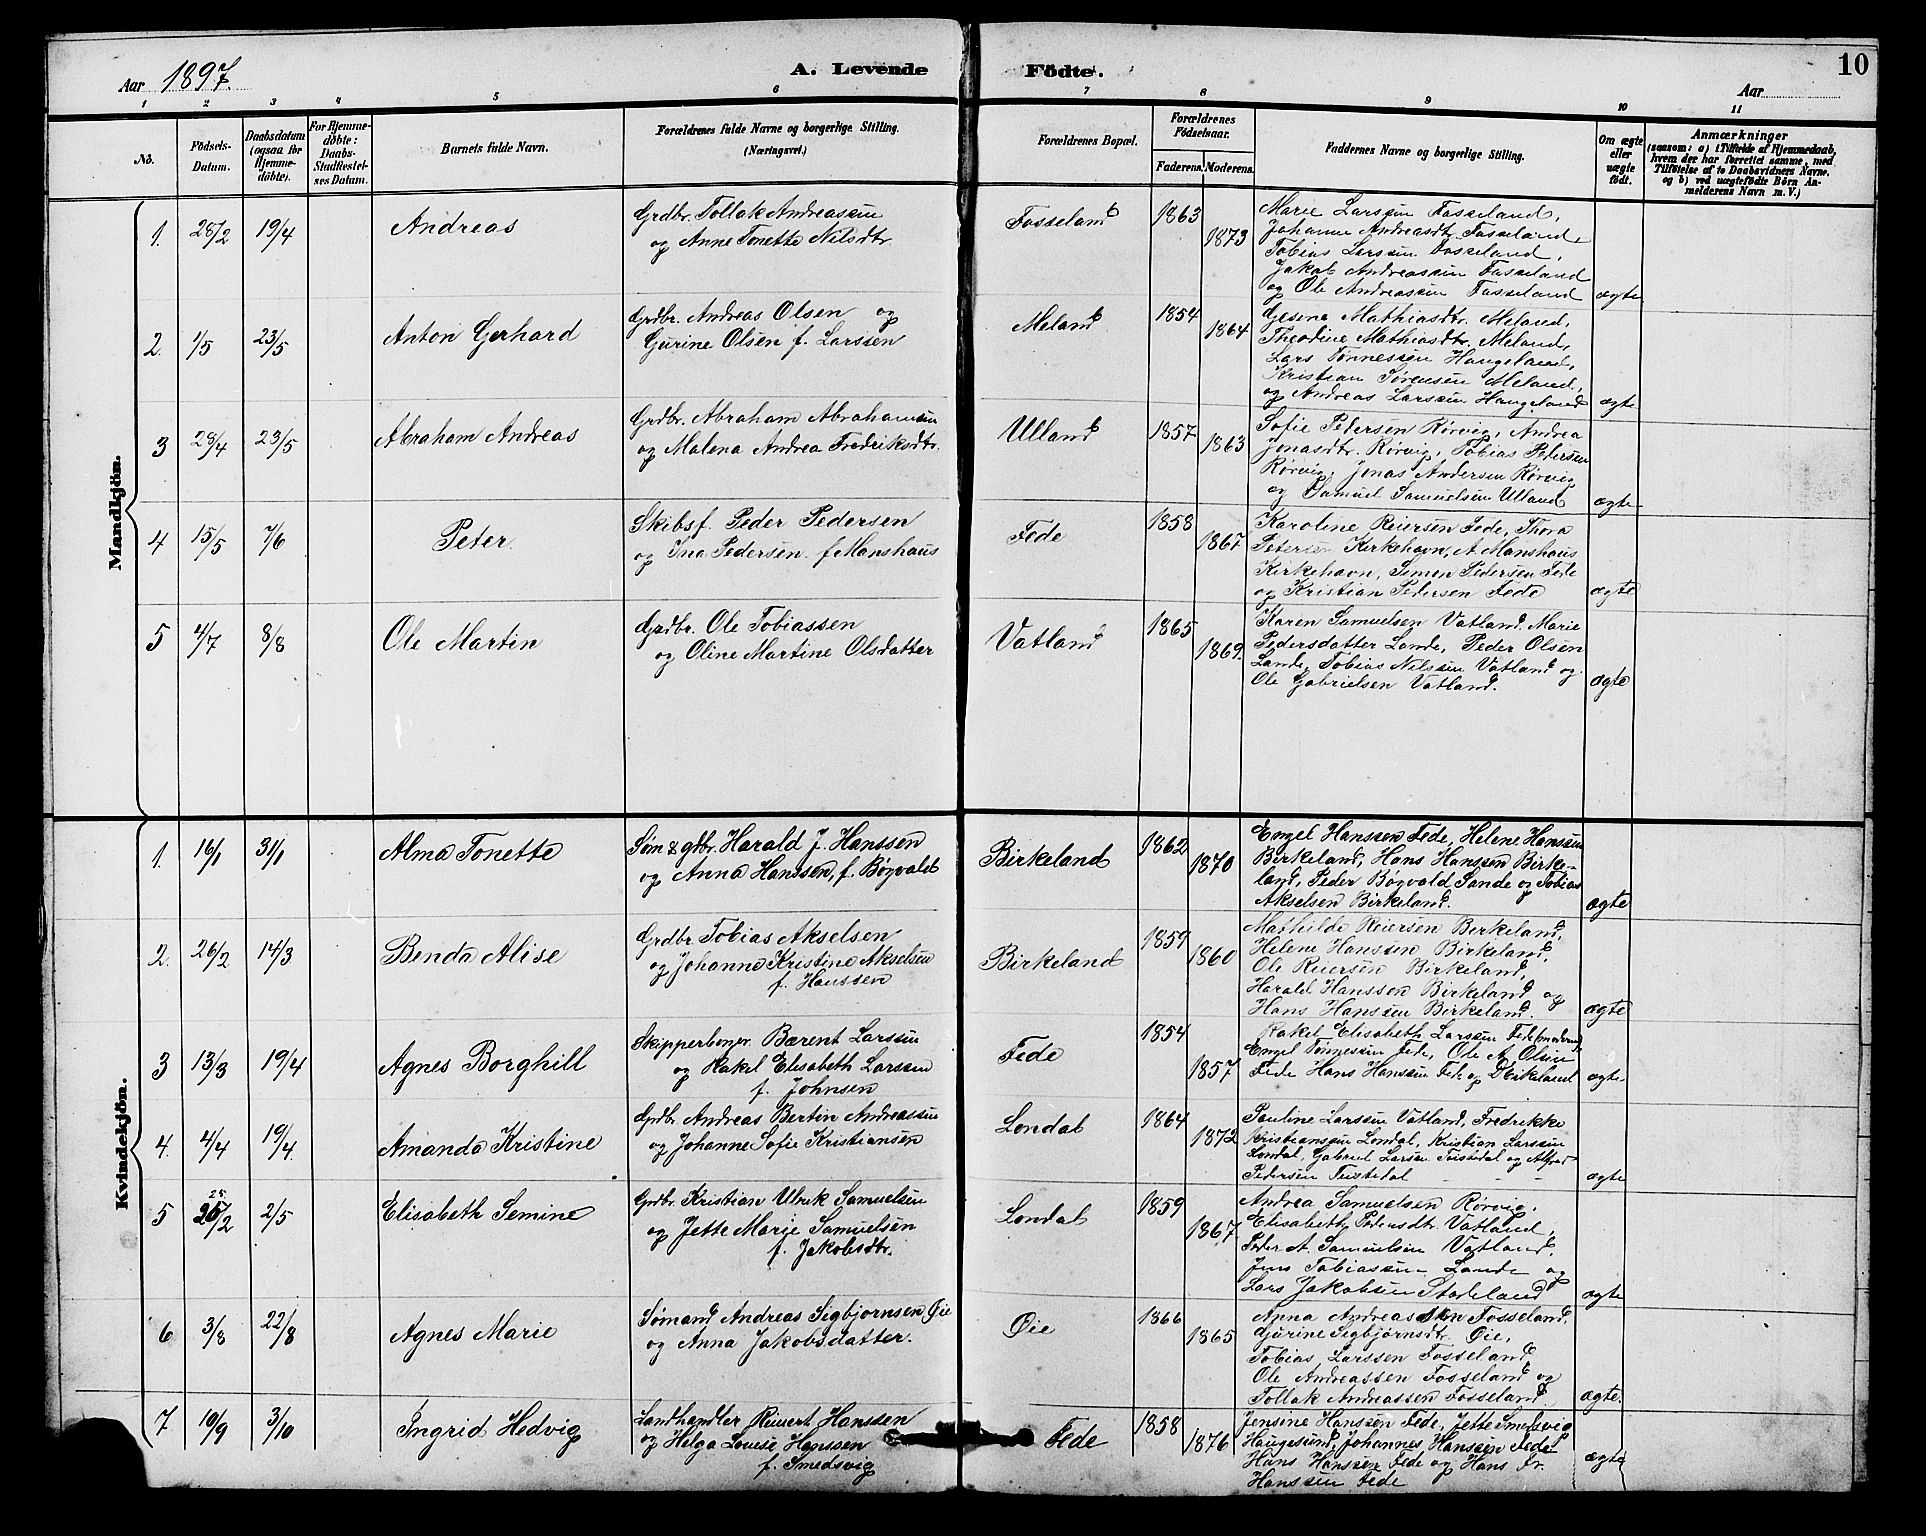 Aar 1897.
A. Levende Födte.
Aar
10
1 2 3 4 5 6 7 8 9 10 11
No.
Födsels-Datum.
Daabsdatum (ogsaa for Hjemme-döbte).
For Hjemme-döbte: Daabs-Stadfæstel-ses Datum.
Barnets fulde Navn.
Forældrenes fulde Navne og borgerlige Stilling. (Næringsvei.)
Forældrenes Bopæl.
Forældrenes Födselsaar.
Faderens. Moderens.
Faddernes Navne og borgerlige Stilling.
Om ægte eller uægte födt.
Anmærkninger
(saasom: a) i Tilfælde af Hjemmedaab, hvem der har forrettet samme, med Tilföielse af to Daabsvidners Navne. og b) ved uægtefödte Börn An-melderens Navn m. V.)
Mandkjön.
1. 28/2 19/4 Andreas
Grdbr. Tollak Andreassen
og Anne Tonette Nilsdtr.
Fosseland 1863 1873
Marie Larssen Fosseland,
Johanne Andreasdtr. Fosseland,
Tobias Larssen Fosseland,
Jakob Andreassen Fosseland
og Ole Andreassen Fosseland
ægte
2. 1/5 23/5 Anton Gerhard
Grdbr. Andreas Olsen og
Gurine Olsen f. Larssen
Meland 1854 1864
Gesine Mathiasdtr. Meland,
Theodine Mathiasdtr. Meland,
Lars Tønnessen Haugeland,
Kristian Sørensen Meland,
og Andreas Larssen Haugeland
ægte
3 28/4 23/5 Abraham Andreas
Grdbr. Abraham Abrahamsen
og Malena Andrea Fredriksdtr.
Ulland 1857 1863
Sofie Pedersen Rørvig, Andrea
Jonasdtr. Rørvig, Tobias Pedersen
Rørvig, Jonas Andersen Rørvig
og Samuel Samuelsen Ulland
ægte
4 15/5 7/6 Peter.
Skibsf. Peder Pedersen
og Ina Pedersen f. Manshaus
Fede 1858 1867
Karoline Reiersen Fede, Thora
Petersen Kirkehavn, A. Manshaus
Kirkehavn, Simon Pedersen Fede
og Kristian Pedersen Fede
ægte
5 4/7 8/8 Ole Martin
Grdbr. Ole Tobiassen
og Oline Martine Olsdatter
Vatland 1865 1869.
Karen Samuelsen Vatland. Marie
Pedersdatter Lande, Peder Olsen
Lande, Tobias Nilssen Vatland og
Ole Gabrielsen Vatland.
ægte
Kvindekjön.
1. 16/1 31/1 Alma Tonette
Søm & gdbr. Harald J. Hanssen
og Anna Hanssen, f. Bøgvald
Birkeland 1862 1870
Engel Hanssen Fede, Helene Hanssen
Birkeland, Hans Hanssen Birke-
land, Peder Bøgvald Sande og Tobias
Akselsen Birkeland.
ægte
2. 26/2 14/3 Benda Alise
Grdbr. Tobias Akselsen
og Johanne Kristine Akselsen
f. Hanssen
Birkeland 1859 1860
Mathilde Reiersen Birkeland,
Helene Hanssen Birkeland,
Ole Reiersen Birkeland,
Harald Hanssen Birkeland og
Hans Hanssen Birkeland.
ægte
3 13/3 19/4 Agnes Borghill
Skipperborger Bærent Larssen
og Rakel Elisabeth Larssen
f. Johnsen
Fede 1854 1857
Rakel Elisabeth Larssen Fede (moderen)
Engel Tønnessen Fede, Ole A. Olsen
Fede Hans Hanssen Fede og
ægte
4. 4/4 19/4. Amanda Kristine
Grdbr. Andreas Bertin Andreassen
og Johanne Sofie Kristiansen
Londal 1864 1872
Pauline Larssen Vatland, Fredrikke
Kristianssen Londal, Kristian Larssen
Londal, Gabriel Larsen Tuistedal og Alfred
Pedersen Tuistedal
ægte
5 25/2 2/5 Elisabeth Semine
Grdbr. Kristian Ulrik Samuelsen
og Jette Marie Samuelsen
f. Jakobsdtr.
Londal 1859 1867
Andrea Samuelsen Rørvig,
Elisabeth Pedersdtr. Vatland,
Peder A. Samuelsen Vatland,
Jens Tobiassen Lande og
Lars Jakobsen Stordeland
ægte
6 3/8 22/8 Agnes Marie
Sømand Andreas Sigbjørnsen Øie
og Anna Jakobsdatter.
Øie 1866 1865
Anna Andreassen Fosseland,
Gurine Sigbjørnsdtr. Øie,
Tobias Larssen Fosseland,
Ole Andreassen Fosseland og
Tollak Andreassen Fosseland.
ægte.
7 10/9 3/10 Ingrid Hedvig
Landhandler Reinert Hanssen
og Helga Lovise Hanssen
f. Smedsvig
Fede 1858 1876
Jensine Hanssen Fede, Jette Smedsvig
Haugesund, Johannes Hanssen Fede
Hans Hanssen Fede og Hans Fr.
Hanssen Fede
ægte